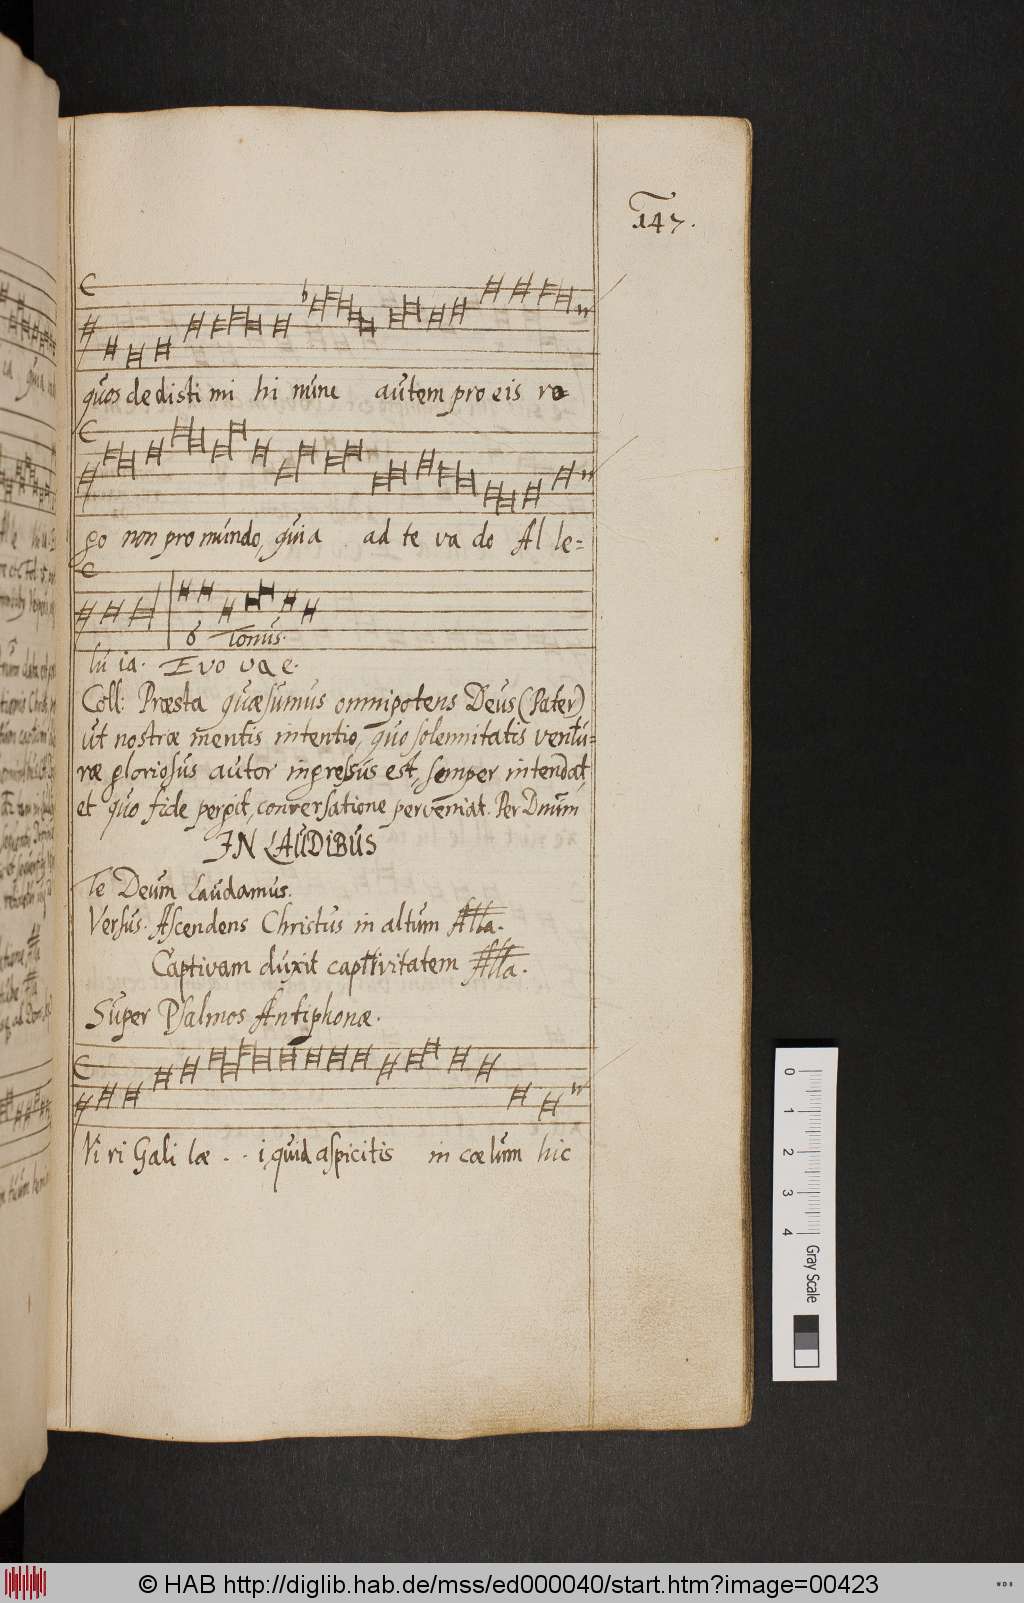 147.
quos dedisti mi hi nunc autem pro eis ro
go non pro mundo, quia ad te va do Al le=
6 Tonus.
lu ia. Evo vae.
Coll: Præsta quæsumus omnipotens Deus (Pater)
ut nostræ mentis intentio, quo solennitatis ventu=
ræ gloriosus autor ingressus est, semper intendat,
et quo fide pergit, conversatione perveniat. Per Dnum
IN LAUDIBUS
Te Deum Laudamus.
Versus. Ascendens Christus in altum Alla.
Captivam duxit captivitatem Alla.
Super Psalmos Antiphonæ.
Vi ri Gali læ . . i, quid aspicitis in cœlum hic
0 1 2 3 4 Gray Scale
© HAB http://diglib.hab.de/mss/ed000040/start.htm?image=00423
WDB